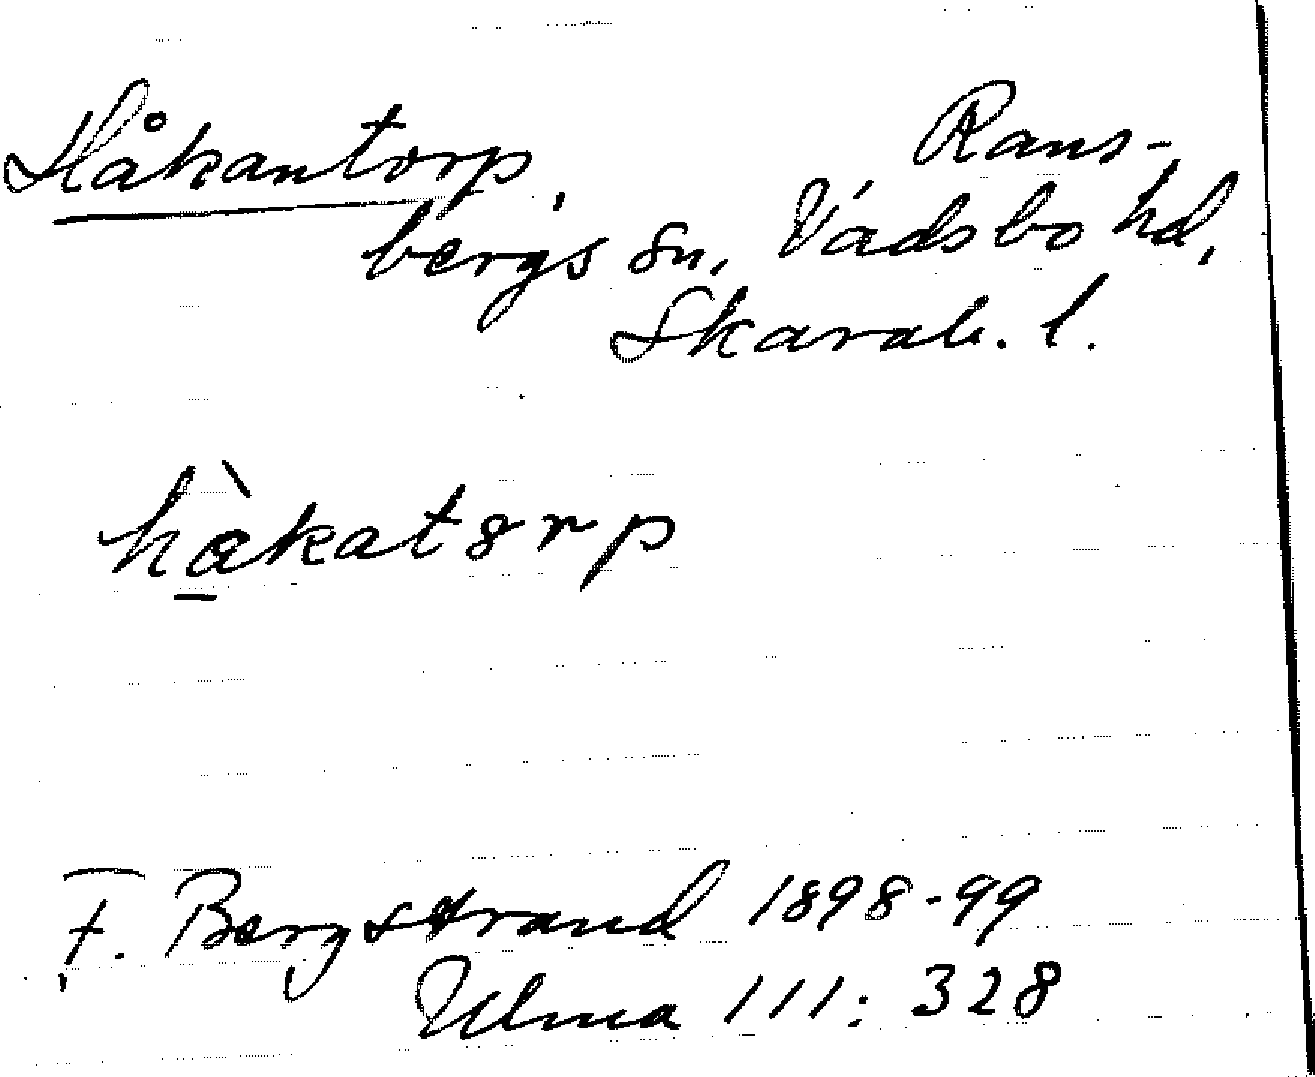 Håkantorp, Rans-
bergs sn, Vadsbo hd,
Skarab. l.
hàkatȣrp
F. Bergstrand 1898-99
Ulma 111: 328